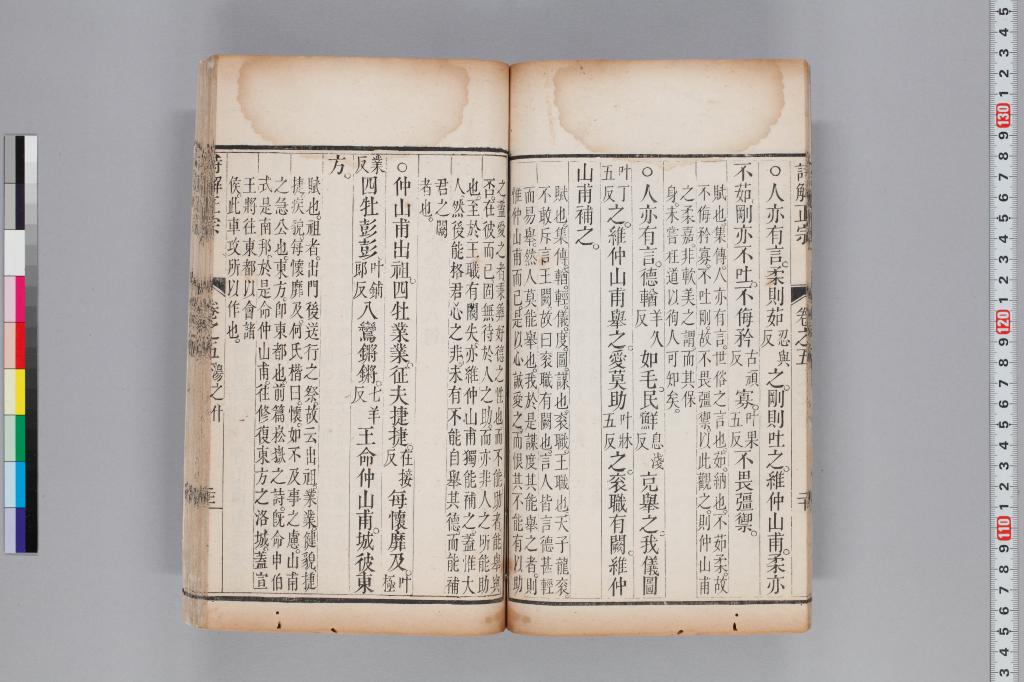 詩解正宗 卷之五
○人亦有言。柔則茹忍與反之。剛則吐之。維仲山甫。柔亦
不茹。剛亦不吐。不侮矜古頑反寡。叶果五反不畏彊禦。
賦也。集傳人亦有言。世俗之言也。茹。納也。不茹柔。故
不侮矜寡。不吐剛。故不畏彊禦。以此觀之。則仲山甫
之柔嘉。非軟美之謂。而其保
身。未嘗枉道以徇人可知矣。
○人亦有言。德輶羊久反如毛。民鮮息淺反克舉之。我儀圖
叶丁五反之。維仲山甫舉之。愛莫助叶牀五反之。袞職有闕。維仲
山甫補之。
賦也。集傳輶。輕。儀。度。圖。謀也。袞職。王職也。天子龍袞。
不敢斥言王闕。故曰袞職有闕也。言人皆言德甚輕
而易舉。然人莫能舉也。我於是謀度其能舉之者。則
惟仲山甫而已。是以心誠愛之。而恨其不能有以助
之。蓋愛之者。秉彝好德之性也。而不能助者。能舉與
否。在彼而已。固無待於人之助。而亦非人之所能助
也。至於王職有闕失。亦維仲山甫獨能補之。蓋惟大
人然後能格君心之非。未有不能自舉其德。而能補
君之闕
者也。
○仲山甫出祖。四牡業業。征夫捷捷。在接反每懷靡及。叶極
業反四牡彭彭。叶鋪郎反八鸞鏘鏘。七羊反王命仲山甫。城彼東
方。
賦也。祖者。出門後送行之祭。故云出祖。業業。健貌。捷
捷。疾貌。每懷靡及。何氏楷曰。懷。如不及事之慮。山甫
之急公也。東方。卽東都也。前篇崧嶽之詩。旣命申伯
式是南邦。於是命仲山甫。往修復東方之洛城。蓋宣
王將往東都以會諸
侯。此車攻所以作也。
詩解正宗 卷之五